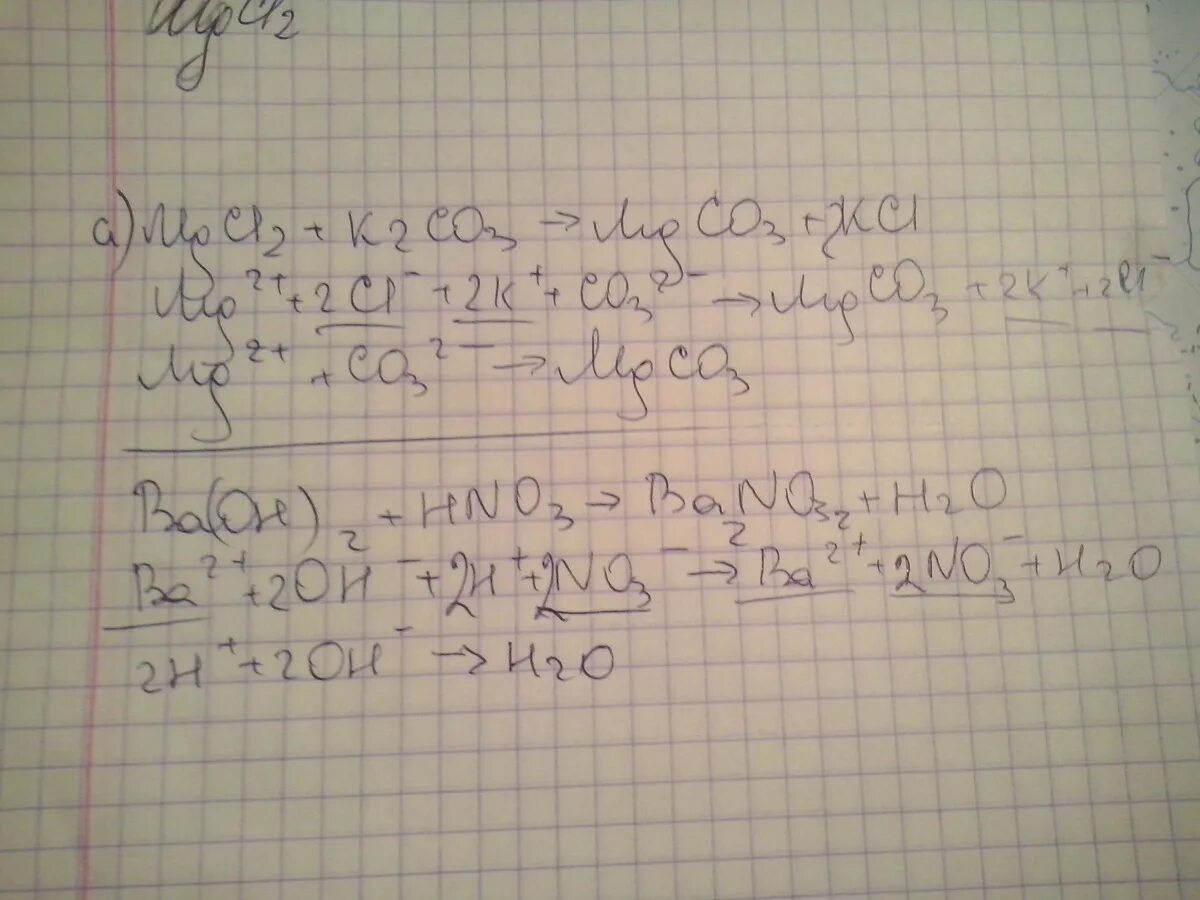 MgCl2
а) MgCl2 + K2CO3 → MgCO3 + 2KCl
Mg²⁺ + 2Cl⁻ + 2K⁺ + CO3²⁻ → MgCO3 + 2K⁺ + 2Cl⁻
Mg²⁺ + CO3²⁻ → MgCO3
Ba(OH)2 + HNO3 → Ba2NO32 + H2O
Ba²⁺ + 2OH⁻ + 2H⁺ + 2NO3⁻ → Ba²⁺ + 2NO3⁻ + H2O
2H⁺ + 2OH⁻ → H2O